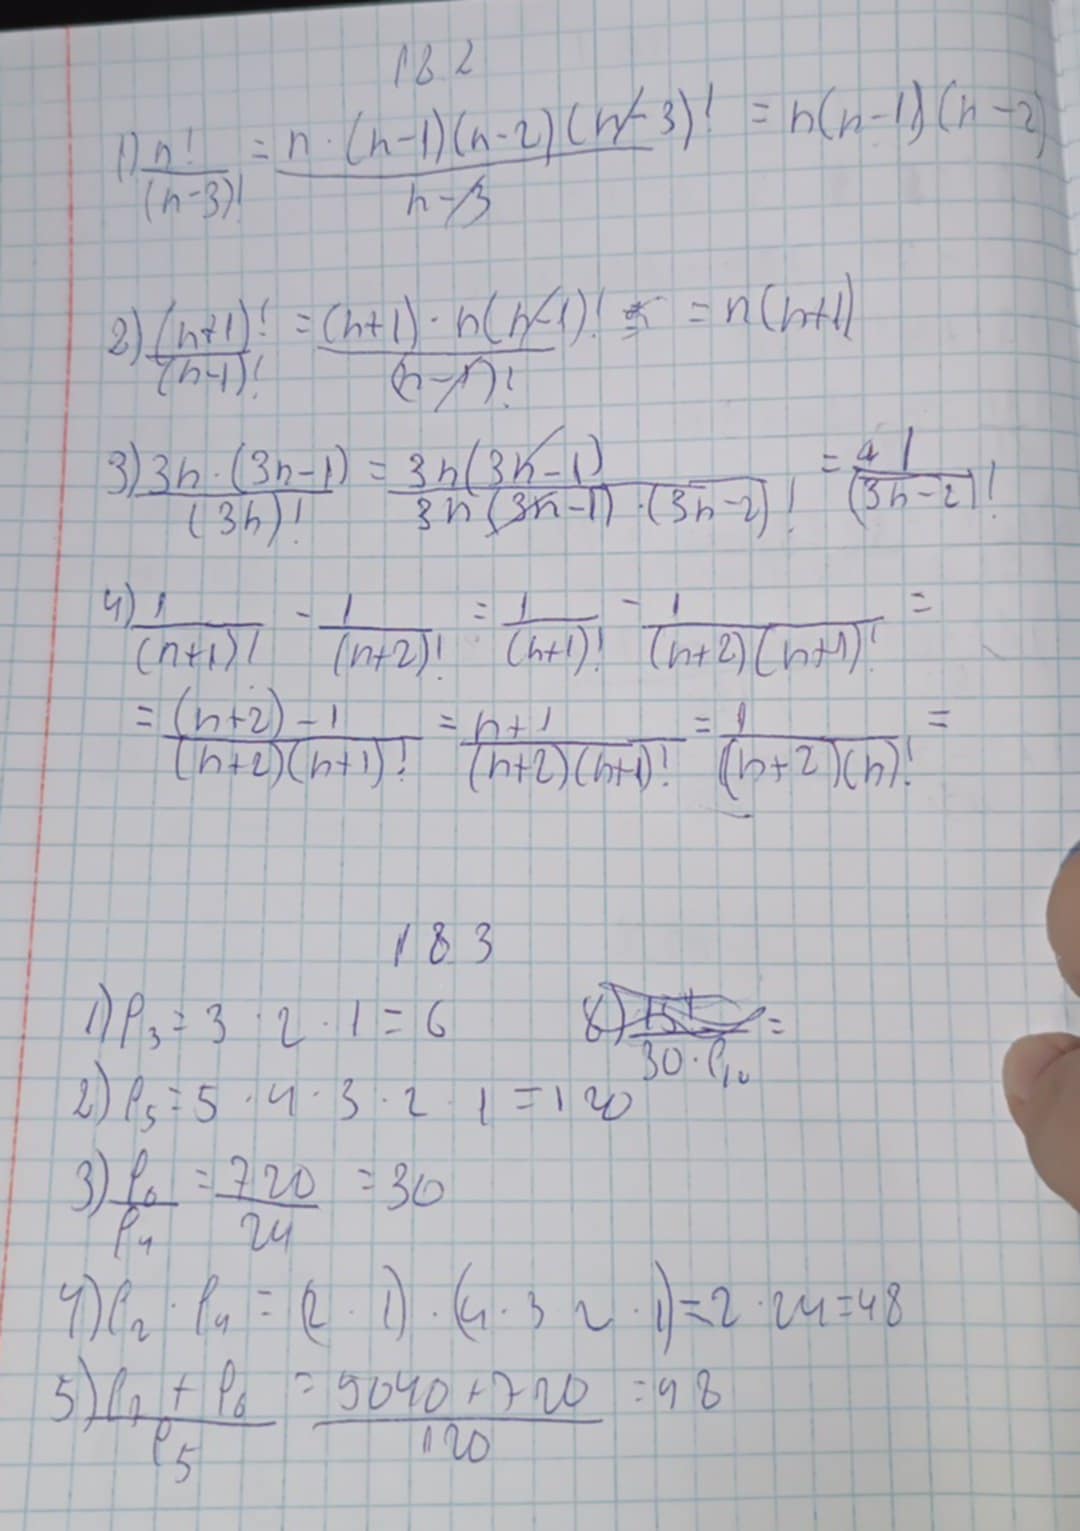 182
1) n!/(n-3)! = n·(n-1)(n-2)(n-3)!/n-3 = n(n-1)(n-2)
2) (n+1)!/(n-1)! = (n+1)·n(n-1)!/(n-1)! = n(n+1)
3) 3n·(3n-1)/(3n)! = 3n(3n-1)/3n(3n-1)·(3n-2)! = 1/(3n-2)!
4) 1/(n+1)! - 1/(n+2)! = 1/(n+1)! - 1/(n+2)(n+1)! =
= (n+2)-1/(n+2)(n+1)! = n+1/(n+2)(n+1)! = 1/(n+2)(n)! =
183
1) P₃ = 3·2·1 = 6
8) /30·P₁₀ =
2) P₅ = 5·4·3·2·1 = 120
3) P₆/P₄ = 720/24 = 30
4) P₂·P₄ = (2·1)·(4·3 2·1) = 2·24 = 48
5) P₇ + P₆/P₅ = 5040 + 720/120 = 48